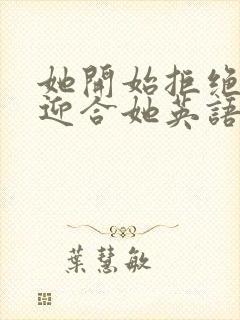 她開始拒絕
迎合她英語
葉慧敏